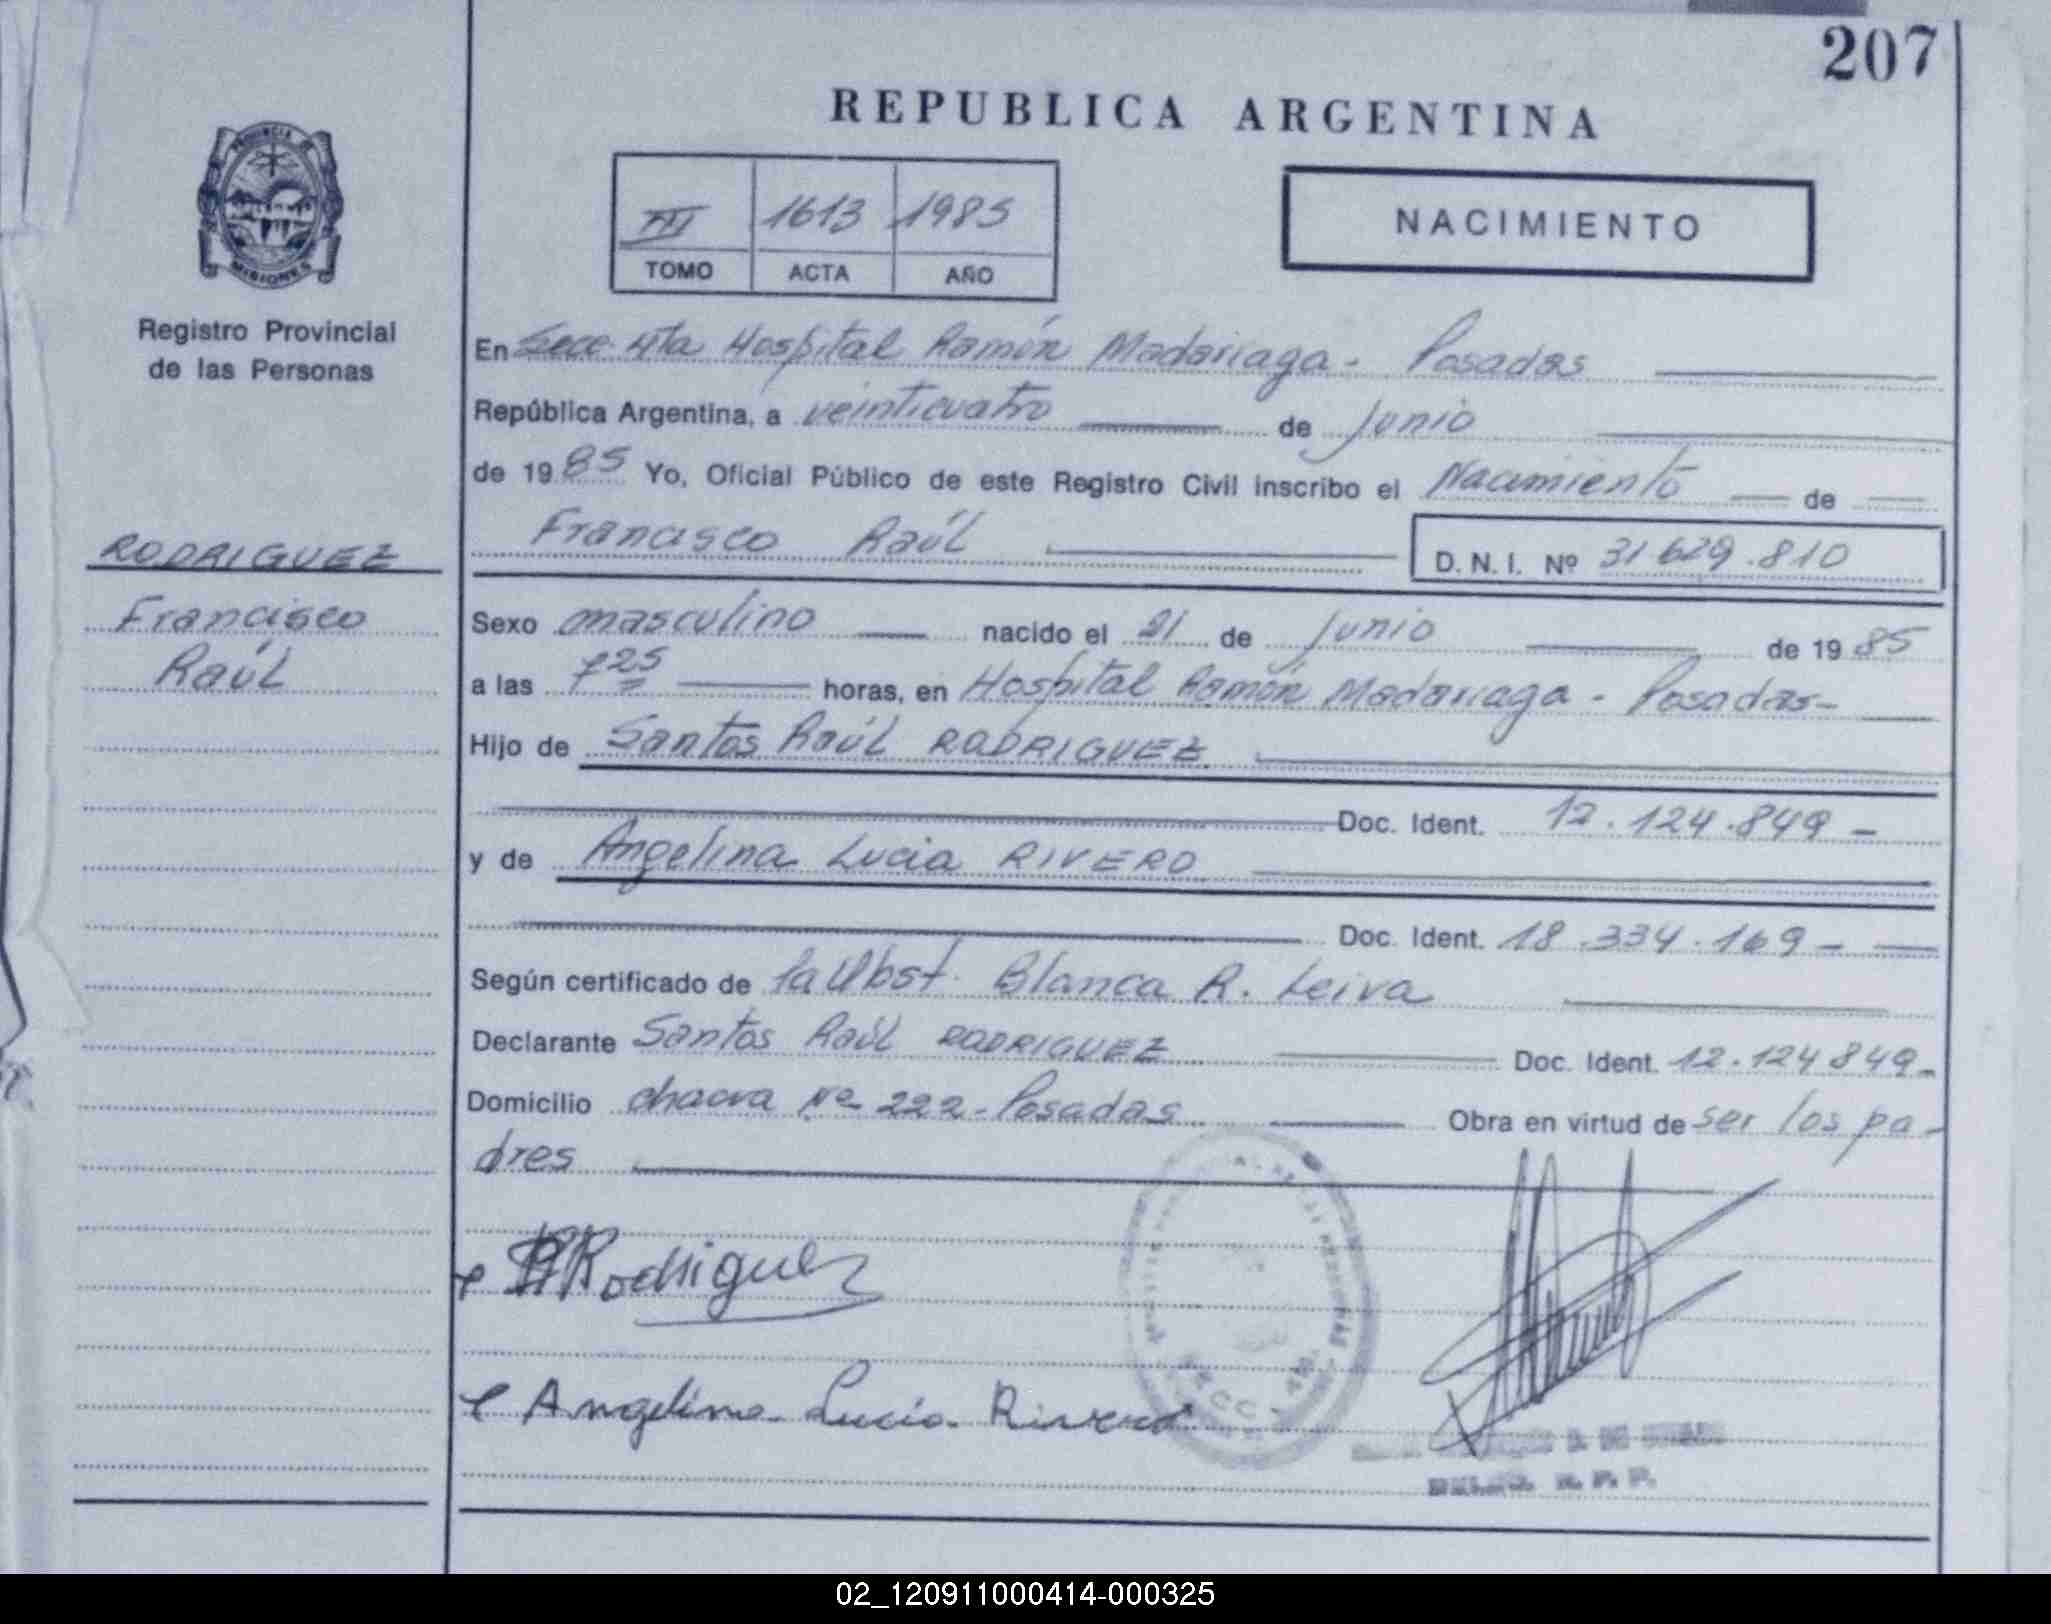 207
REPUBLICA ARGENTINA
PROVINCIA DE
MISIONES
Registro Provincial
de las Personas
III 1613 1985
TOMO ACTA AÑO
NACIMIENTO
En Secc 4ta Hospital Ramón Madariaga - Posadas
República Argentina, a veinticuatro de junio
de 1985 Yo, Oficial Público de este Registro Civil inscribo el Nacimiento de
Francisco Raúl D. N. I. Nº 31 629.810
RODRIGUEZ
Francisco
Raúl
Sexo masculino nacido el 21 de junio de 1985
a las 7 25 horas, en Hospital Ramón Madariaga - Posadas-
Hijo de Santos Raúl RODRIGUEZ
Doc. Ident. 12.124.849 -
y de Angelina Lucia RIVERO
Doc. Ident. 18.334.169 -
Según certificado de la Obst. Blanca R. Leiva
Declarante Santos Raúl RODRIGUEZ Doc. Ident. 12.124849-
Domicilio chacra Nº 222-Posadas Obra en virtud de ser los pa-
dres
Rodriguez
Angelina Lucia Rivero
02_120911000414-000325